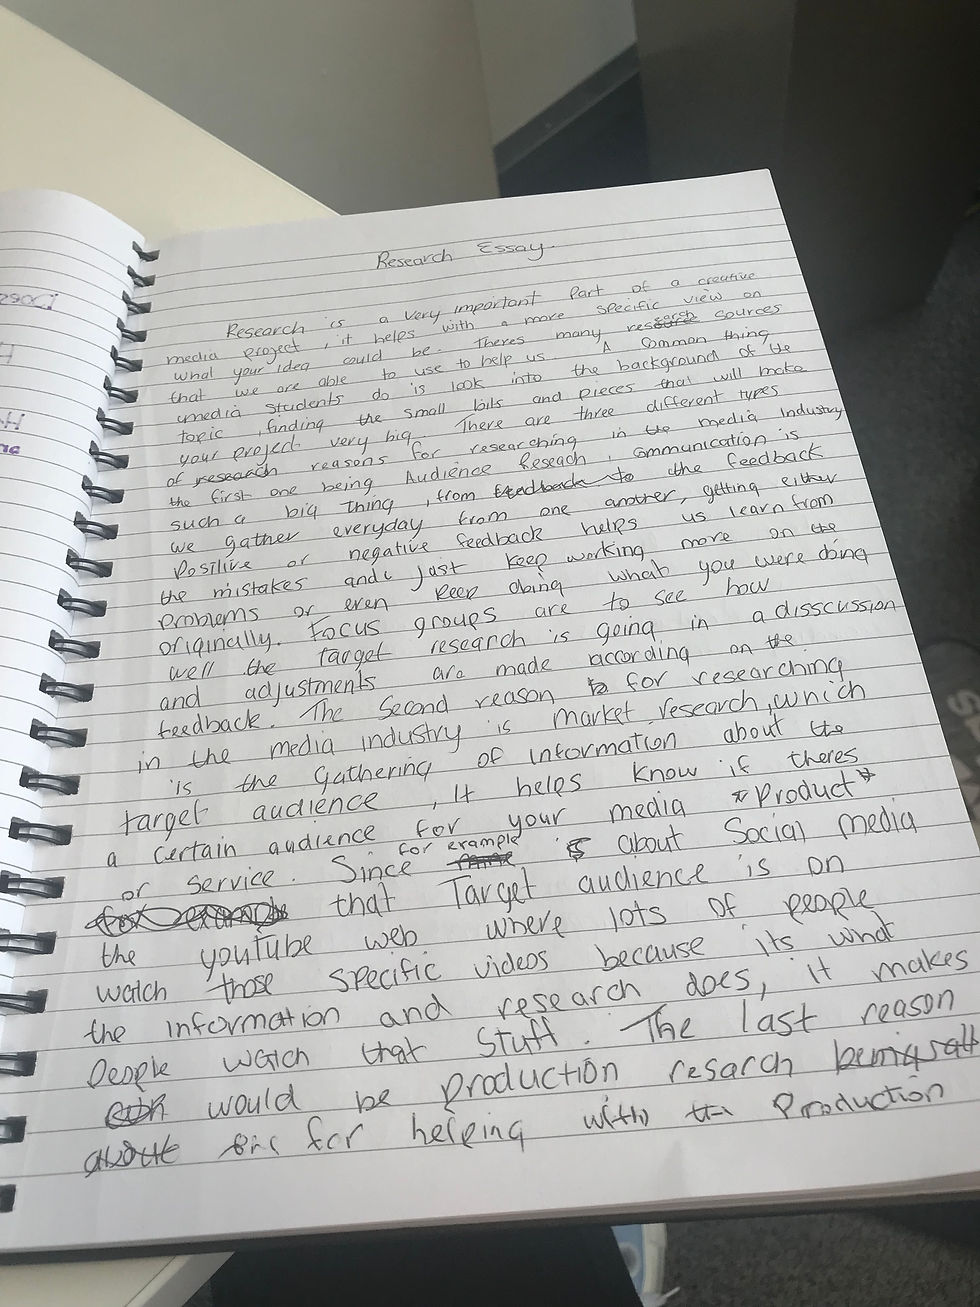 Research Essay.
Research is a very important Part of a creative
media project, it helps with a more specific view on
what your idea could be. Theres many research sources
that we are able to use to help us. A Common thing
media students do is look into the background of the
topic, finding the small bits and pieces that will make
your project very big. There are three different types
of research reasons for researching in the media Industry
the first one being Audience Reseach, communication is
such a big thing, from feedback to the feedback
we gather everyday from one another, getting either
Positive or negative feedback helps us learn from
the mistakes and just keep working more on the
problems or even keep doing what you were doing
originally. Focus groups are to see how
well the target research is going in a disscussion
and adjustments are made according on the
feedback. The Second reason for researching
in the media industry is market research, which
is the gathering of information about the
target audience, It helps know if theres
a certain audience for your media *Product*
or service. Since for example is about Social media
for example that Target audience is on
the youtube web where lots of people
watch those specific videos because its what
the information and research does, it makes
people watch that stuff. The last reason
would be production resarch being
about for helping with the Production